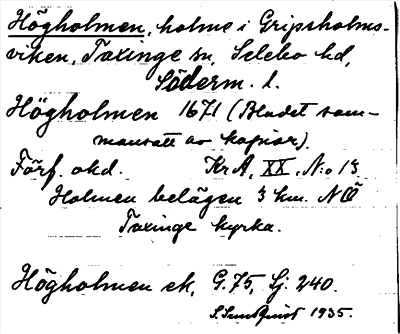 Högholmen, holme i Gripsholms-
viken, Taxinge sn, Selebo hd,
Söderm. l.
Högholmen 1671 (Bladet sam-
mansatt av kopior).
Förf. okd. KrA, XX, N:o 13
Holmen belägen 3 km. NÖ
Taxinge kyrka.
Högholmen ek, G. 75, Lj. 240.
S. Sundquist 1935.